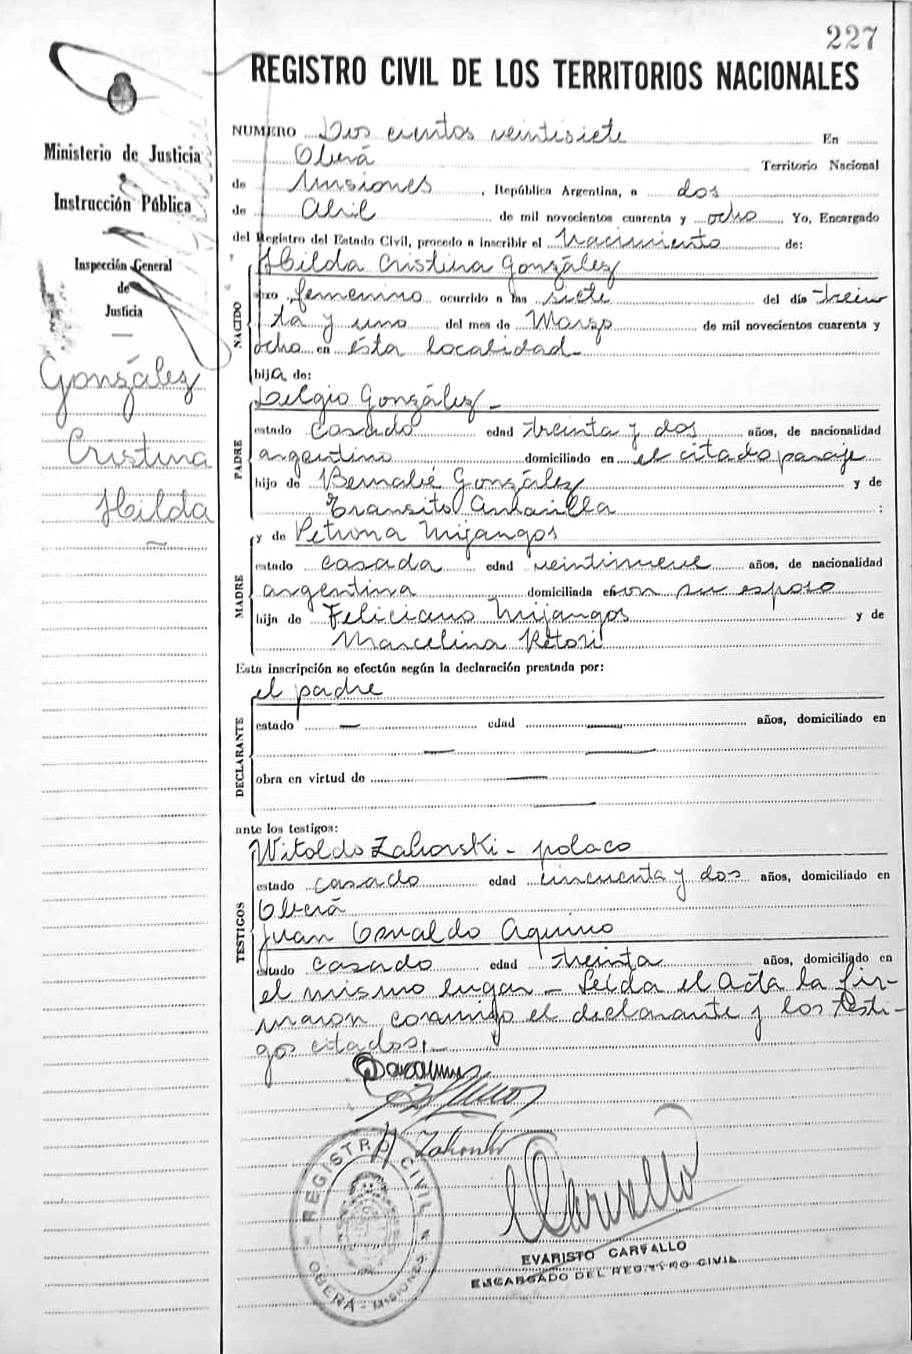 227
REGISTRO CIVIL DE LOS TERRITORIOS NACIONALES
Ministerio de Justicia
Instrucción Pública
Inspección General
de
Justicia
González
Cristina
Hilda
NUMERO Dos cientos veintisiete En
Oberá Territorio Nacional
de Misiones, República Argentina, a dos
de Abril de mil novecientos cuarenta y ocho Yo, Encargado
del Registro del Estado Civil, procedo a inscribir el nacimiento de:
NACIDO
Hilda Cristina González
sexo femenino ocurrido a las siete del día trein
ta y uno del mes de Marzo de mil novecientos cuarenta y
ocho en ésta localidad
hija de:
PADRE
González
estado casado edad treinta y dos años, de nacionalidad
argentino domiciliado en el citado paraje
hijo de Bernabé González y de
Transito :
MADRE
y de Petrona Mijangos
estado casada edad veintinueve años, de nacionalidad
argentina domiciliada con su esposo
hija de Feliciano Mijangos y de
Marcelina
Esta inscripción se efectúa según la declaración prestada por:
DECLARANTE
el padre
estado — edad — años, domiciliado en
— —
obra en virtud de —
—
ante los testigos:
TESTIGOS
Witoldo Zahorski - polaco
estado casado edad cincuenta y dos años, domiciliado en
Oberá
Juan Osvaldo Aquino
estado casado edad treinta años, domiciliado en
el mismo lugar - Leída el Acta la fir-
maron conmigo el declarante y los testi-
gos citados.-
REGISTRO CIVIL
OBERÁ - MISIONES
EVARISTO CARVALLO
ENCARGADO DEL REGISTRO CIVIL